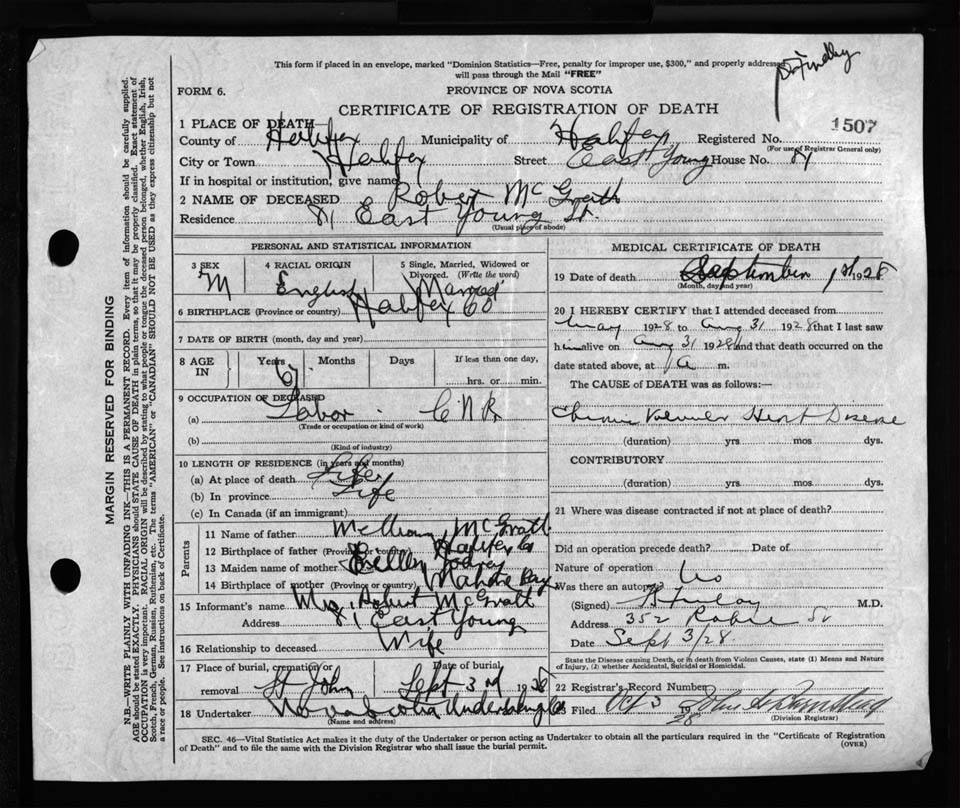 Dr Findlay
This form if placed in an envelope, marked "Dominion Statistics—Free, penalty for improper use, $300," and properly addressed
will pass through the Mail "FREE"
FORM 6.
PROVINCE OF NOVA SCOTIA
CERTIFICATE OF REGISTRATION OF DEATH
1507
1 PLACE OF DEATH—
County of Halifax Municipality of Halifax Registered No.
(For use of Registrar General only)
City or Town Halifax Street East Young House No. 81
If in hospital or institution, give name
2 NAME OF DECEASED Robert McGrath
Residence 81 East Young St.
(Usual place of abode)
PERSONAL AND STATISTICAL INFORMATION
3 SEX M
4 RACIAL ORIGIN English
5 Single, Married, Widowed or Divorced. (Write the word) Married
6 BIRTHPLACE (Province or country) Halifax Co
7 DATE OF BIRTH (month, day and year)
8 AGE IN Years 67 Months Days If less than one day, hrs. or min.
9 OCCUPATION OF DECEASED
(a) Labor C N R
(Trade or occupation or kind of work)
(b)
(Kind of industry)
10 LENGTH OF RESIDENCE (in years and months)
(a) At place of death Life
(b) In province Life
(c) In Canada (if an immigrant)
Parents
11 Name of father McGrath
12 Birthplace of father (Province or country) Halifax Co
13 Maiden name of mother
14 Birthplace of mother (Province or country) Mahone Bay
15 Informant's name Mrs. Robert McGrath
Address 81 East Young
16 Relationship to deceased Wife
17 Place of burial, cremation or removal St John Date of burial Sept 3rd 1928
18 Undertaker Nova Scotia Undertaking Co
(Name and address)
MEDICAL CERTIFICATE OF DEATH
19 Date of death September 1st 1928
(Month, day and year)
20 I HEREBY CERTIFY that I attended deceased from
1928 to Aug 31 1928 that I last saw
him alive on Aug 31 1928 and that death occurred on the
date stated above, at 1 a m.
The CAUSE of DEATH was as follows:—
Chronic Valvular Heart Disease
(duration) yrs. mos. dys.
CONTRIBUTORY
(duration) yrs. mos. dys.
21 Where was disease contracted if not at place of death?
Did an operation precede death? Date of
Nature of operation
Was there an autopsy? No
(Signed) Findlay M.D.
Address 352 Robie St
Date Sept 3/28.
State the Disease causing Death, or in death from Violent Causes, state (1) Means and Nature
of Injury, (2) whether Accidental, Suicidal or Homicidal.
22 Registrar's Record Number
Filed Oct 3 1928
(Division Registrar)
SEC. 46—Vital Statistics Act makes it the duty of the Undertaker or person acting as Undertaker to obtain all the particulars required in the "Certificate of Registration
of Death" and to file the same with the Division Registrar who shall issue the burial permit.
(OVER)
MARGIN RESERVED FOR BINDING
N.B.—WRITE PLAINLY WITH UNFADING INK—THIS IS A PERMANENT RECORD. Every item of information should be carefully supplied.
AGE should be stated EXACTLY. PHYSICIANS should STATE CAUSE OF DEATH in plain terms, so that it may be properly classified. Exact statement of
OCCUPATION is very important. RACIAL ORIGIN will be described by stating to what people or tongue the deceased person belonged, whether English, Irish,
Scotch, French, German, Russian, Ruthenian, etc. The terms "AMERICAN" or "CANADIAN" SHOULD NOT BE USED as they express citizenship but not
a race or people. See instructions on back of Certificate.